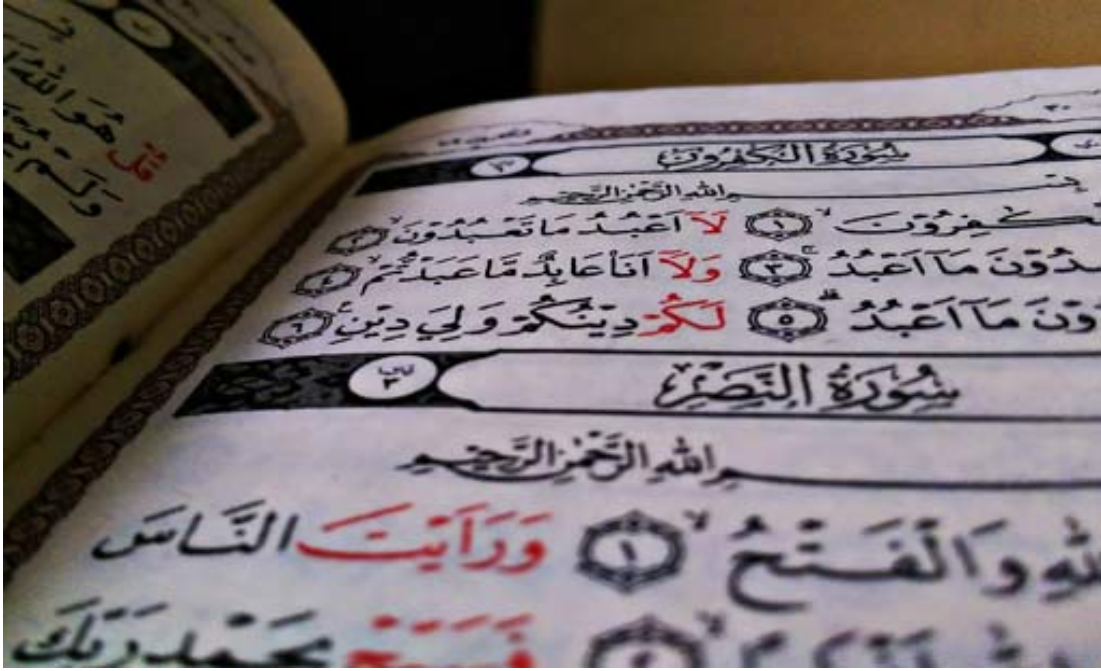 قُلْ هُوَ اللّٰهُ
وَلَمْ
٣٠
سُوْرَةُ الْكٰفِرُوْنَ
بِسْمِ اللّٰهِ الرَّحْمٰنِ الرَّحِيْمِ
كٰفِرُوْنَ ۙ ١ لَآ اَعْبُدُ مَا تَعْبُدُوْنَ ۙ ٢
مَآ اَعْبُدُ ۚ ٣ وَلَآ اَنَا۠ عَابِدٌ مَّا عَبَدْتُّمْ ۙ ٤
مَآ اَعْبُدُ ۗ ٥ لَكُمْ دِيْنُكُمْ وَلِيَ دِيْنِ ۚ ٦
سُوْرَةُ النَّصْرِ
بِسْمِ اللّٰهِ الرَّحْمٰنِ الرَّحِيْمِ
وَالْفَتْحُ ۙ ١ وَرَاَيْتَ النَّاسَ
فَسَبِّحْ بِحَمْدِ رَبِّكَ